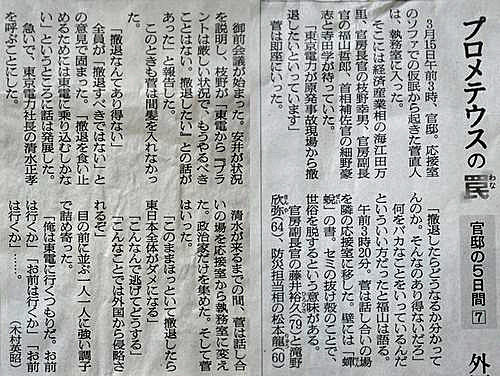 プロメテウスの罠
わな
官邸の5日間 7
外
3月15日午前3時、官邸。応接室
のソファでの仮眠から起きた菅直人
は、執務室に入った。
そこには経済産業相の海江田万
里、官房長官の枝野幸男、官房副長
官の福山哲郎、首相補佐官の細野豪
志と寺田学が待っていた。
「東京電力が原発事故現場から撤
退したいといっています」
菅は即座にいった。
「撤退したらどうなるか分かって
んのか。そんなのあり得ないだろ」
何をバカなことをいっているんだ
といういい方だったと福山は語る。
午前3時20分。菅は話し合いの場
を隣の応接室に移した。壁には「蟬
蛻」の書。セミの抜け殻のことで、
世俗を脱するという意味がある。
官房副長官の藤井裕久(79)と滝野
欣弥(64)、防災担当相の松本龍(60)
御前会議が始まった。安井が状況
を説明し、枝野が「東電から『プラ
ントは厳しい状況で、もうやるべき
ことはない。撤退したい』との話が
あった」と報告した。
このときも菅は間髪を入れなかっ
た。
「撤退なんてあり得ない」
全員が「撤退すべきではない」と
の意見で固まった。「撤退を食い止
めるためには東電に乗り込むしかな
い」というところに話は発展した。
急いで、東京電力社長の清水正孝
を呼ぶことにした。
清水が来るまでの間、菅は話し合
いの場を応接室から執務室に変え
た。政治家だけを集めた。そして菅
はいった。
「このままほっといて撤退したら
東日本全体がダメになる」
「こんなんで逃げてどうする」
「こんなことでは外国から侵略さ
れるぞ」
目の前に並ぶ一人一人に強い調子
で詰め寄った。
「俺は東電に行くつもりだ。お前
は行くか」「お前は行くか」「お前
は行くか」……。
(木村英昭)